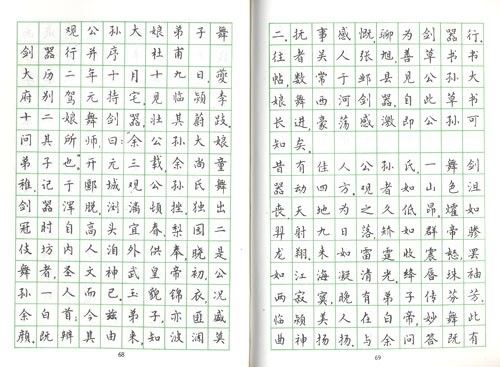 观公孙大娘弟子舞
剑器行并序 杜甫
大历二年十月十九日,夔
府别驾元持宅,见临颍李
十二娘舞剑器,壮其蔚跂,
问其所师,曰:“余公孙大娘
弟子也”开元三载,余尚童
稚,记于郾城观公孙氏舞
剑器浑脱,浏漓顿挫,独出
冠时,自高头宜春梨园二
伎坊内人洎外供奉,晓是
舞者,圣文神武皇帝初,公
孙一人而已.玉貌锦衣,况
余白首;今兹弟子,亦匪盛
颜.既辨其由来,知波澜莫
68
二.抚事感慨,聊为剑器行.
往者吴人张旭善草书书
帖,数常于邺县见公孙大
娘舞西河剑器,自此草书
长进,豪荡感激,即公孙可
知矣.
昔有佳人公孙氏,一舞剑
器动四方.观者如山色沮
丧,天地为之久低昂.燿如
羿射九日落,矫如群帝骖
龙翔.来如雷霆收震怒,罢
如江海凝清光.绛唇珠袖
两寂寞,晚有弟子传芬芳.
临颍美人在白帝,妙舞此
曲神扬扬.与余问答既有
69